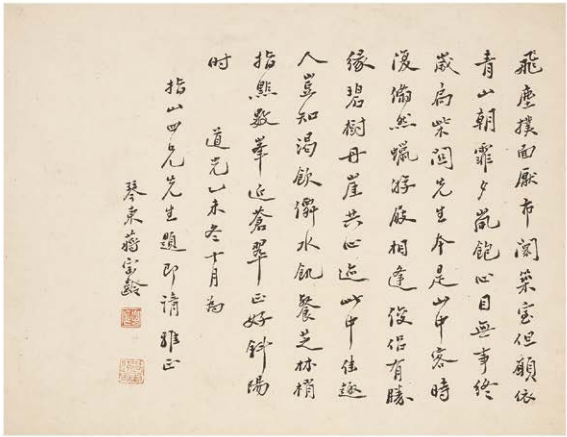 飛塵撲面厭市闤築室但願依
青山朝霏夕嵐飽心目無事終
歲扃柴関先生本是山中客時
復翛然蠟游屐相逢俊侶有勝
緣碧樹丹崖共心迹此中佳趣
人豈知渴飲水飢餐芝林梢
指點數峯近蒼翠正好斜陽
时 道光乙未冬十月為
指山四兄先生題即請雅正
琴東蔣寶齡